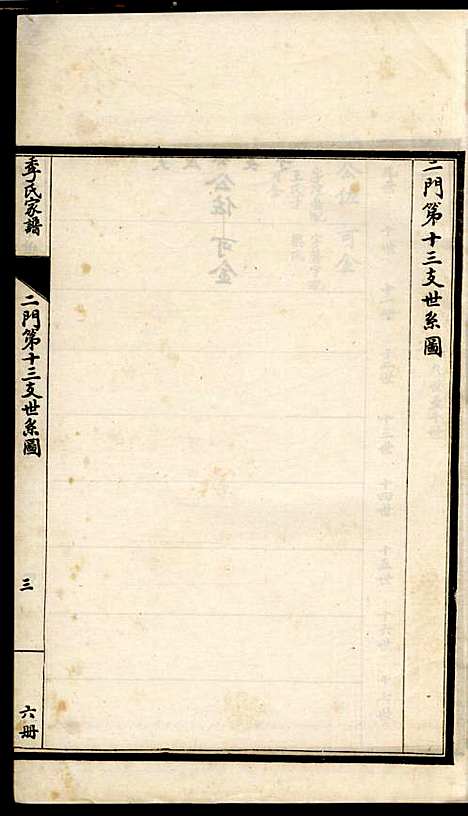 二門第十三支世系圖
季氏家譜
二門第十三支世系圖
三
六冊